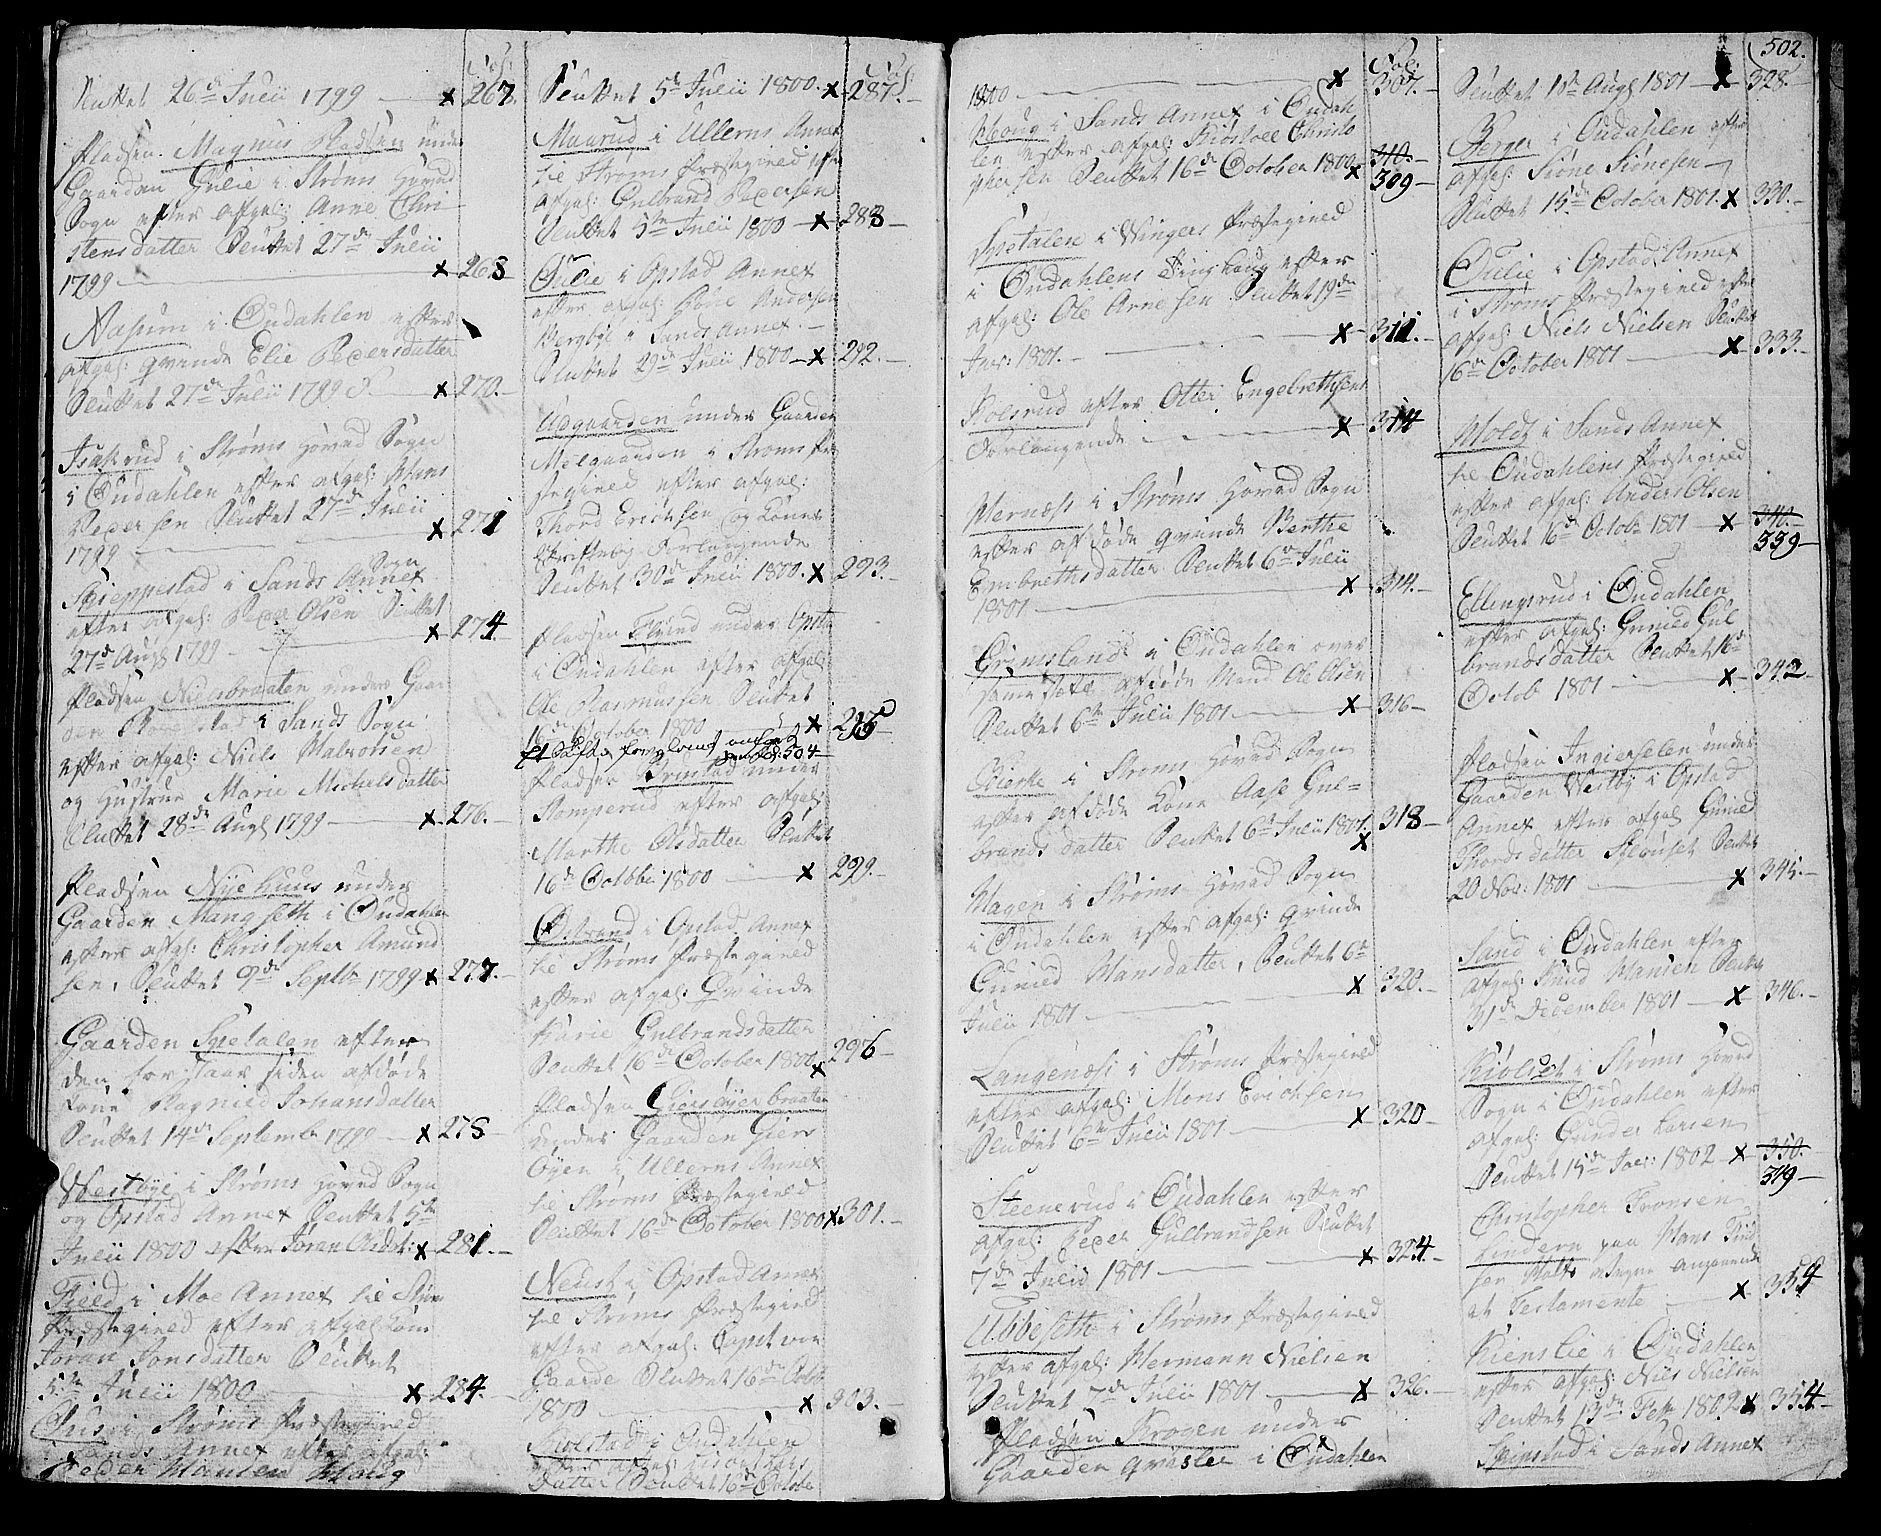 Fol:
Sluttet 26de Julii 1799 — x 267.
Pladsen Magnus Pladsen under
Gaarden Gulie i Strøms Hoved
Sogn efter afgal: Anne Chri-
stensdatter Sluttet 27de Julii
1799 — x 268
Aasum i Oudahlen efter
afgal: Qvinde Elie Pedersdatter
Sluttet 27de Julii 1799 — x 270.
Isakrud i Strøms Hoved Sogn
i Oudahlen efter afgal: Hans
Pedersen Sluttet 27de Julii
1799 — x 271
Skieppestad i Sands Annex Sogn
efter afgal: Peder Olsen Sluttet
27de Augs 1799 — x 274
Pladsen Nielsbraaten under Gaar
den i Sands Sogn
efter afgal: Niels Halvorsen
og Hustrue Marie Michelsdatter
Sluttet 28de Augs 1799 — x 276.
Pladsen Nyehuus under
Gaarden Mangseth i Oudahlen
efter afgal: Christopher Amund
sen, Sluttet 9de Septbr 1799 x 277.
Gaarden Spetalen efter
den for Aar siden afdøde
Kone Ragnild Johansdatter
Sluttet 14de Septembr 1799 — x 278
Westbye i Strøms Hoved Sogn
og Opstad Annex Sluttet 5te
Julii 1800 efter Jøran Olsdat: x 281.
Field i Moe Annex til Strøms
Præstegield efter afgal: Kone
Jøran Jonsdatter Sluttet
5te Julii 1800 — x 284.
Ouus i Strøms Præstegield
Sands Annex efter afgal:
Peder Hansen Houg
Fol:
Sluttet 5te Julii 1800. x 287.
Maarud i Ullerns Annex
til Strøms Præstegield efter
afgal: Gulbrand Pedersen
Sluttet 5te Julii 1800 — x 288
Oulie i Opstad Annex
efter afgal: Povel Andersen
Bergbye i Sands Annex. —
Sluttet 29de Julii 1800 — x 292. —
Udgaarden under Gaarden
Melgaarden i Strøms Præ
stegield efter afgal:
Thord Erichsen og Kones
Skriftelig Forlangende
Sluttet 30de Julii 1800. x 293.
Pladsen Fløind under Opstad
i Oudahlen efter afgal:
Ole Rasmussen Sluttet
16de October 1800 x 295
Fol: 304
Pladsen under
Stomperud efter afgal:
Marthe Olsdatter Sluttet
16de Octobr: 1800 x 299. —
Ostrand i Opstad Annex
til Strøms Præstegield
efter afgal: Qvinde
Karie Gulbrandsdatter
Sluttet 16de October 1800 x 296 —
Pladsen Giersøyerbraaten
under Gaarden Giers
Øyen i Ullerns Annex
til Strøms Præstegield
Sluttet 16de October 1800 x 301. —
Neust i Opstad Annex
til Strøms Præstegield
efter afgal: Capt von
Gaarde Sluttet 16de Octobr
1800 — x 303. —
Skolstad i Oudahlen
efter afgal:
datter Sluttet 16de Octobr
Fol:
1800 — x 307. —
Houg i Sands Annex i Oudah
len efter afgal: Kiøstoel Christo
phersen Sluttet 16de October 1800 x 310. —
309 —
Spetalen i Wingers Præstegield
i Oudahlens Tinglaug efter
afgal: Ole Arnesen Sluttet 19de
Jnr: 1801. — x 311. —
Kolsrud efter Otter Engelrethsens
Forlangende — x 314
Hernæs i Strøms Hoved Sogn
efter afdøde Qvinde Berthe
Embrethsdatter Sluttet 6te Julii
1801 — x 314. —
Grimsland i Oudahlen over
samesteds afdøde Mand Ole Olsen
Sluttet 6te Julii 1801 — x 316 —
i Strøms Hoved Sogn
efter afdøde Kone Aase Gul=
brandsdatter Sluttet 6te Julii 1801. x 318 —
Hagen i Strøms Hoved Sogn
i Oudahlen efter afgal: Qvinde
Gunild Hansdatter, Sluttet 6te
Julii 1801 — x 320. —
Langenæss i Strøms Præstegield
efter afgal: Mons Erichsen
Sluttet 6te Julii 1801 — x 320 —
Steenerud i Oudahlen efter
afgal: Peder Gulbrandsen Sluttet
7de Julii 1801 — x 324. —
Ubbeseth i Strøms Præstegield
efter afgal: Hermann Nielsen
Sluttet 7de Julii 1801 — x 326. —
Pladsen Krogen under
Gaarden Qvæsler i Oudahlen
502.
Sluttet 18de Augs 1801 — x 328. —
Berger i Oudahlen efter
afgal: Siøne Siønesen —
Sluttet 15de October 1801. x 330. —
Oulie i Opstad Annex
i Strøms Præstegield efter
afgal: Niels Nielsen Sluttet
16de October 1801 — x 333. —
Holdt i Sands Annex
til Oudahlens Præstegield
efter afgal: Anders Olsen
Sluttet 16de Octobr 1801 x 340. —
339 —
Ellingsrud i Oudahlen
efter afgal: Gunild Gul
brandsdatter Sluttet 16de
Octob 1801 — x 342 —
Pladsen Ingierselen under
Gaarden Westby i Opstad
Annex efter afgal Gunild
Thordsdatter Sluttet
20 Nov: 1801 — x 345. —
Sand i Oudahlen efter
afgal: Knud Hansen Sluttet
31de December 1801 — x 346. —
Kiølset i Strøms Hoved
Sogn i Oudahlen efter
afgal: Gunder Larsen
Sluttet 15de Jan: 1802 x 350. —
349 —
Christopher Tronsen
Lindern paa Hans Knud
sen Holts Vegne angaaende
et Testamente — x 354
Kienslie i Oudahlen
efter afgal: Niels Nielsen
Sluttet 13de Feb 1802 x 354. —
Spinstad i Sands Annex